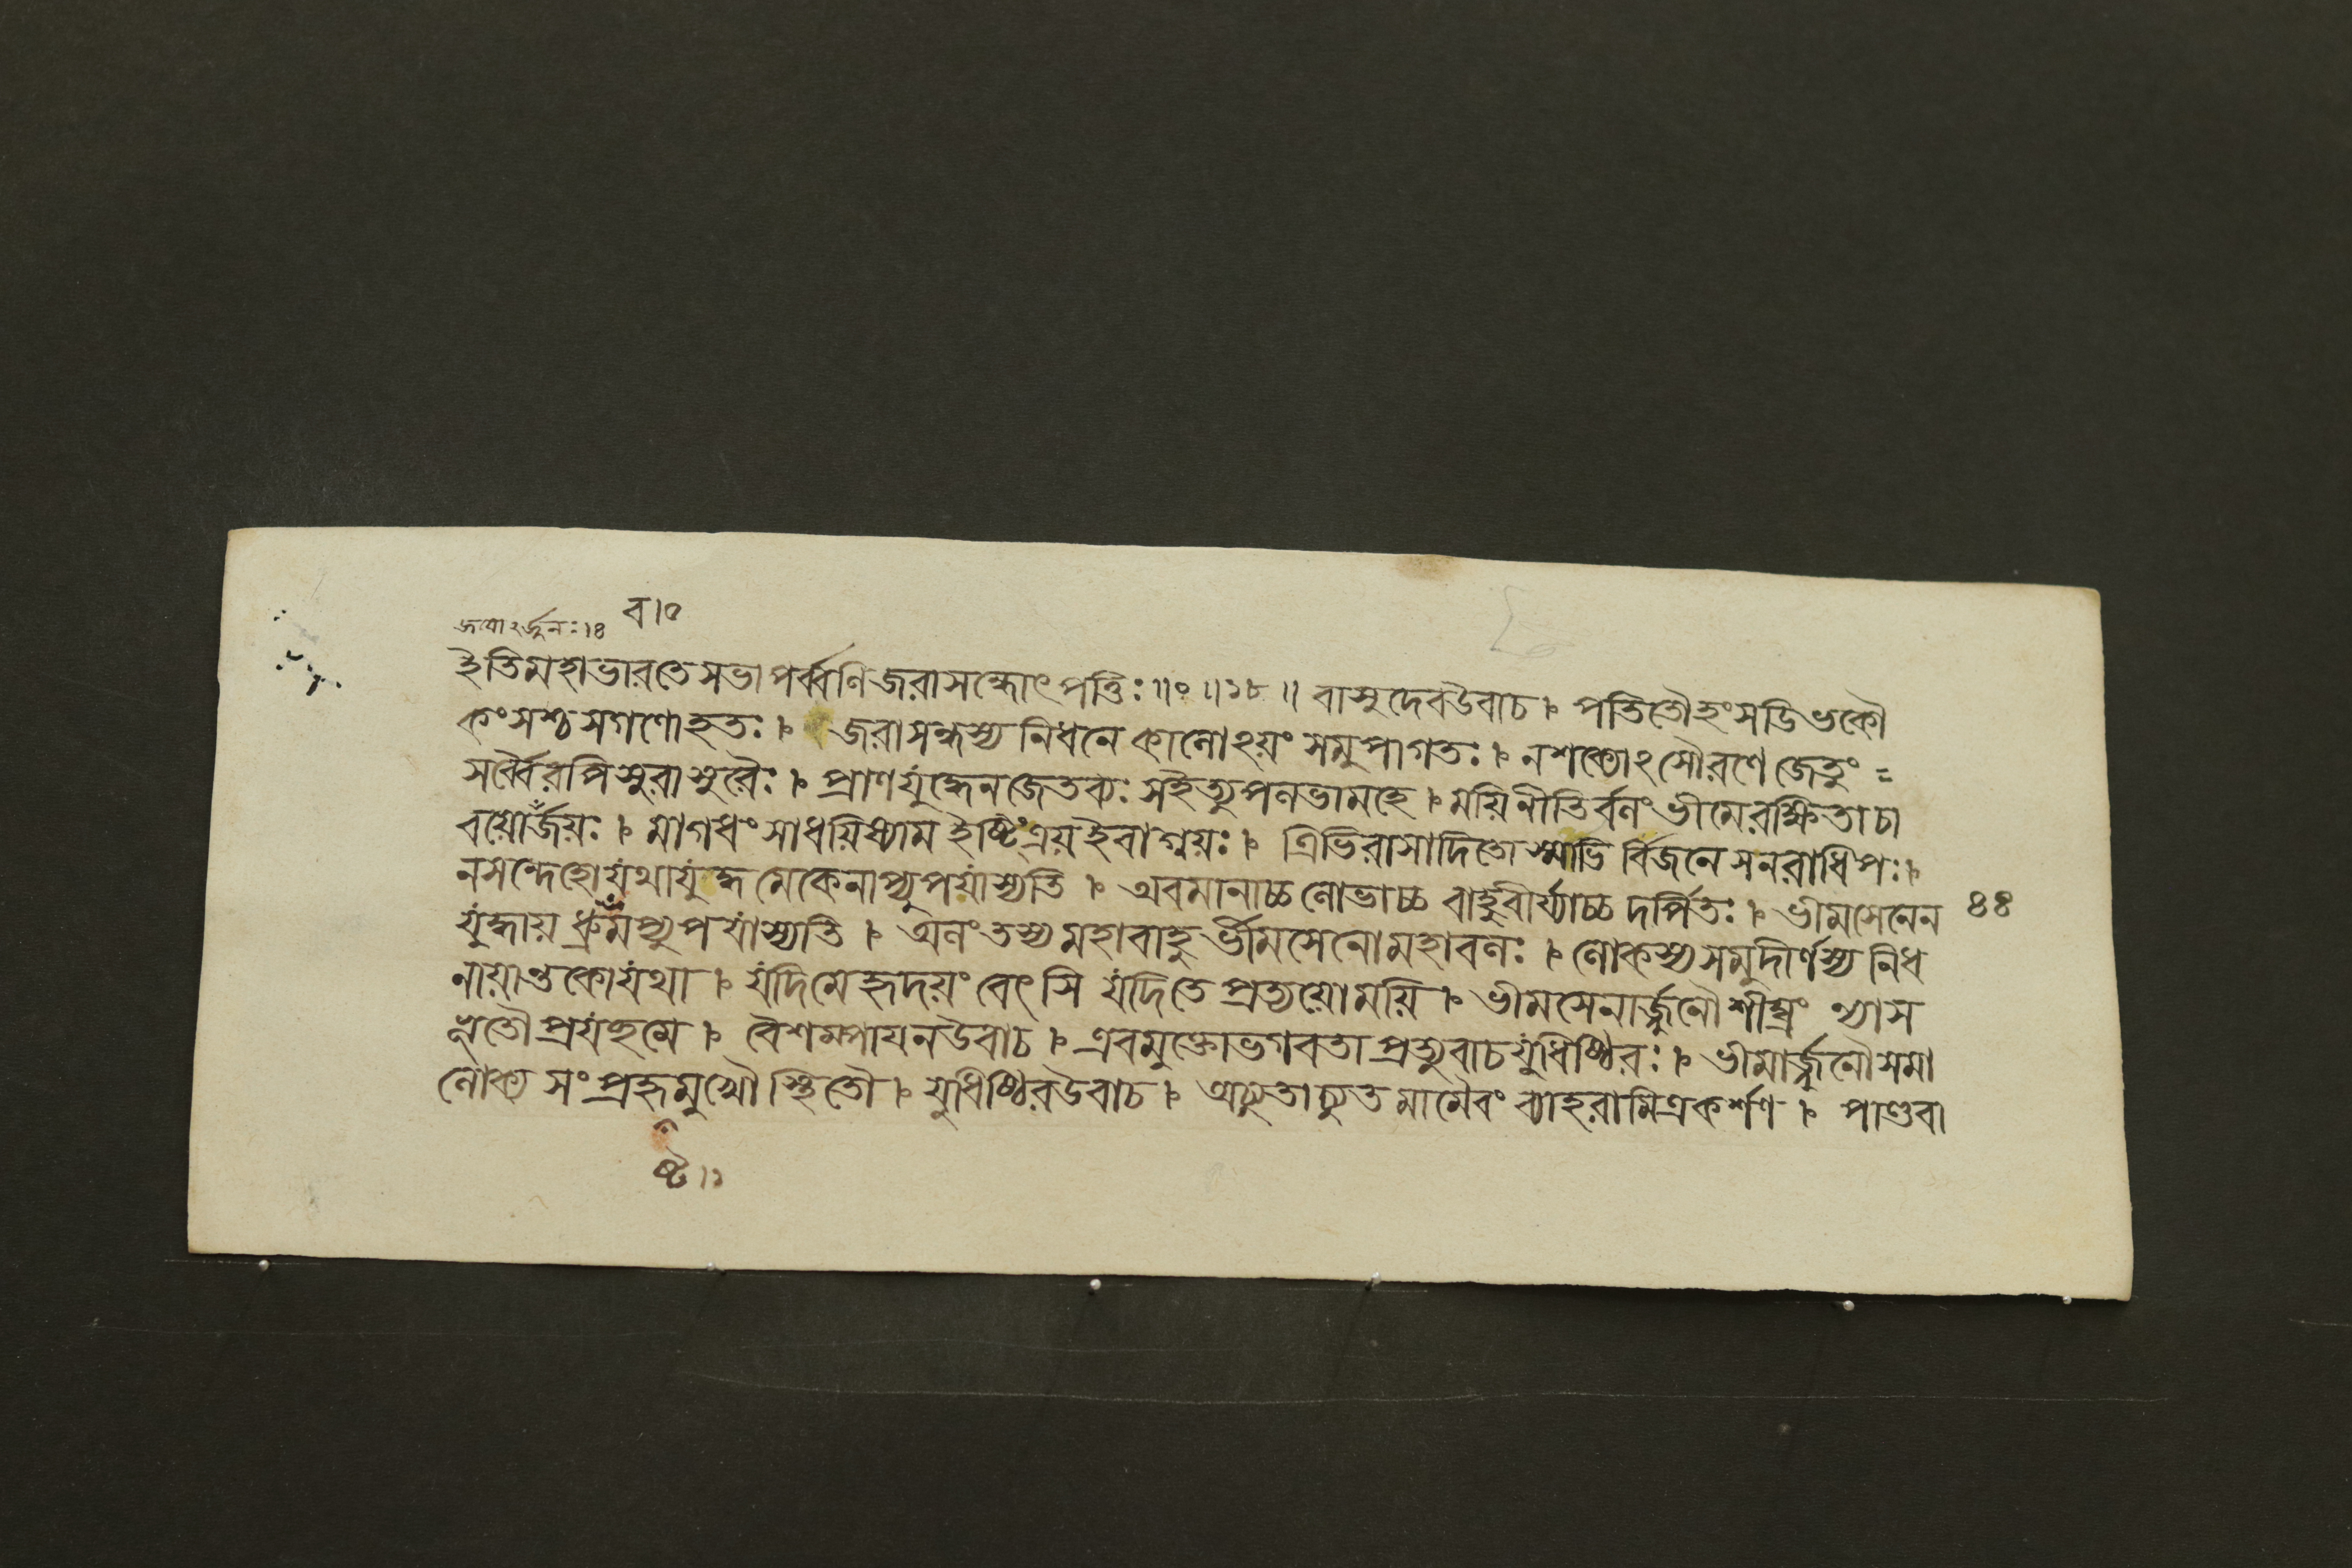 ব।০
জযোঽর্জুনঃ।৪
ইতিমহাভারতেসভাপর্ব্বণিজরাসন্ধোৎপত্তিঃ॥০॥১৮॥ বাসুদেবউবাচ। পতিতৌহংসডিভকৌ
কংসশ্চসগণোহতঃ। জরাসন্ধস্য নিধনে কালোঽয়ং সমুপাগতঃ। নশক্যোঽসৌরণে জেতুং =
সর্ব্বৈরপিসুরাসুরৈঃ। প্রাণযুদ্ধেনজেতব্যঃ সইত্যুপলভামহে। ময়িনীতির্বলং ভীমেরক্ষিতা চা
বয়োর্জয়ঃ। মাগধং সাধয়িষ্যাম ইষ্টিংত্রয়ইবাগ্নয়ঃ। ত্রিভিরাসাদিতোস্মাভির্বিজনে সনরাধিপঃ।
নসন্দেহোযথাযুদ্ধমেকেনাপ্যুপযাস্যতি। অবমানাচ্চলোভাচ্চ বাহুবীর্য্যাচ্চ দর্পিতঃ। ভীমসেনেন
যুদ্ধায় ধ্রুবমপ্যুপযাস্যতি। অলং তস্য মহাবাহুর্ভীমসেনোমহাবলঃ। লোকস্যসমুদীর্ণস্য নিধ
৪৪
নায়ান্তকোযথা। যদিমেহৃদয়ং বেৎসি যদিতে প্রত্যয়োময়ি। ভীমসেনার্জ্জুনৌশীঘ্রং ন্যাস
ভূতৌপ্রযচ্ছমে। বৈশম্পায়নউবাচ। এবমুক্তোভগবতা প্রত্যুবাচযুধিষ্ঠিরঃ। ভীমার্জ্জুনৌসমা
লোক্য সংপ্রহৃমুখৌ স্থিতৌ। যুধিষ্ঠিরউবাচ। অচ্যুতাচ্যুত মামৈবং ব্যাহরামিত্রকর্শণ। পাণ্ডবা
ষ্ট।১